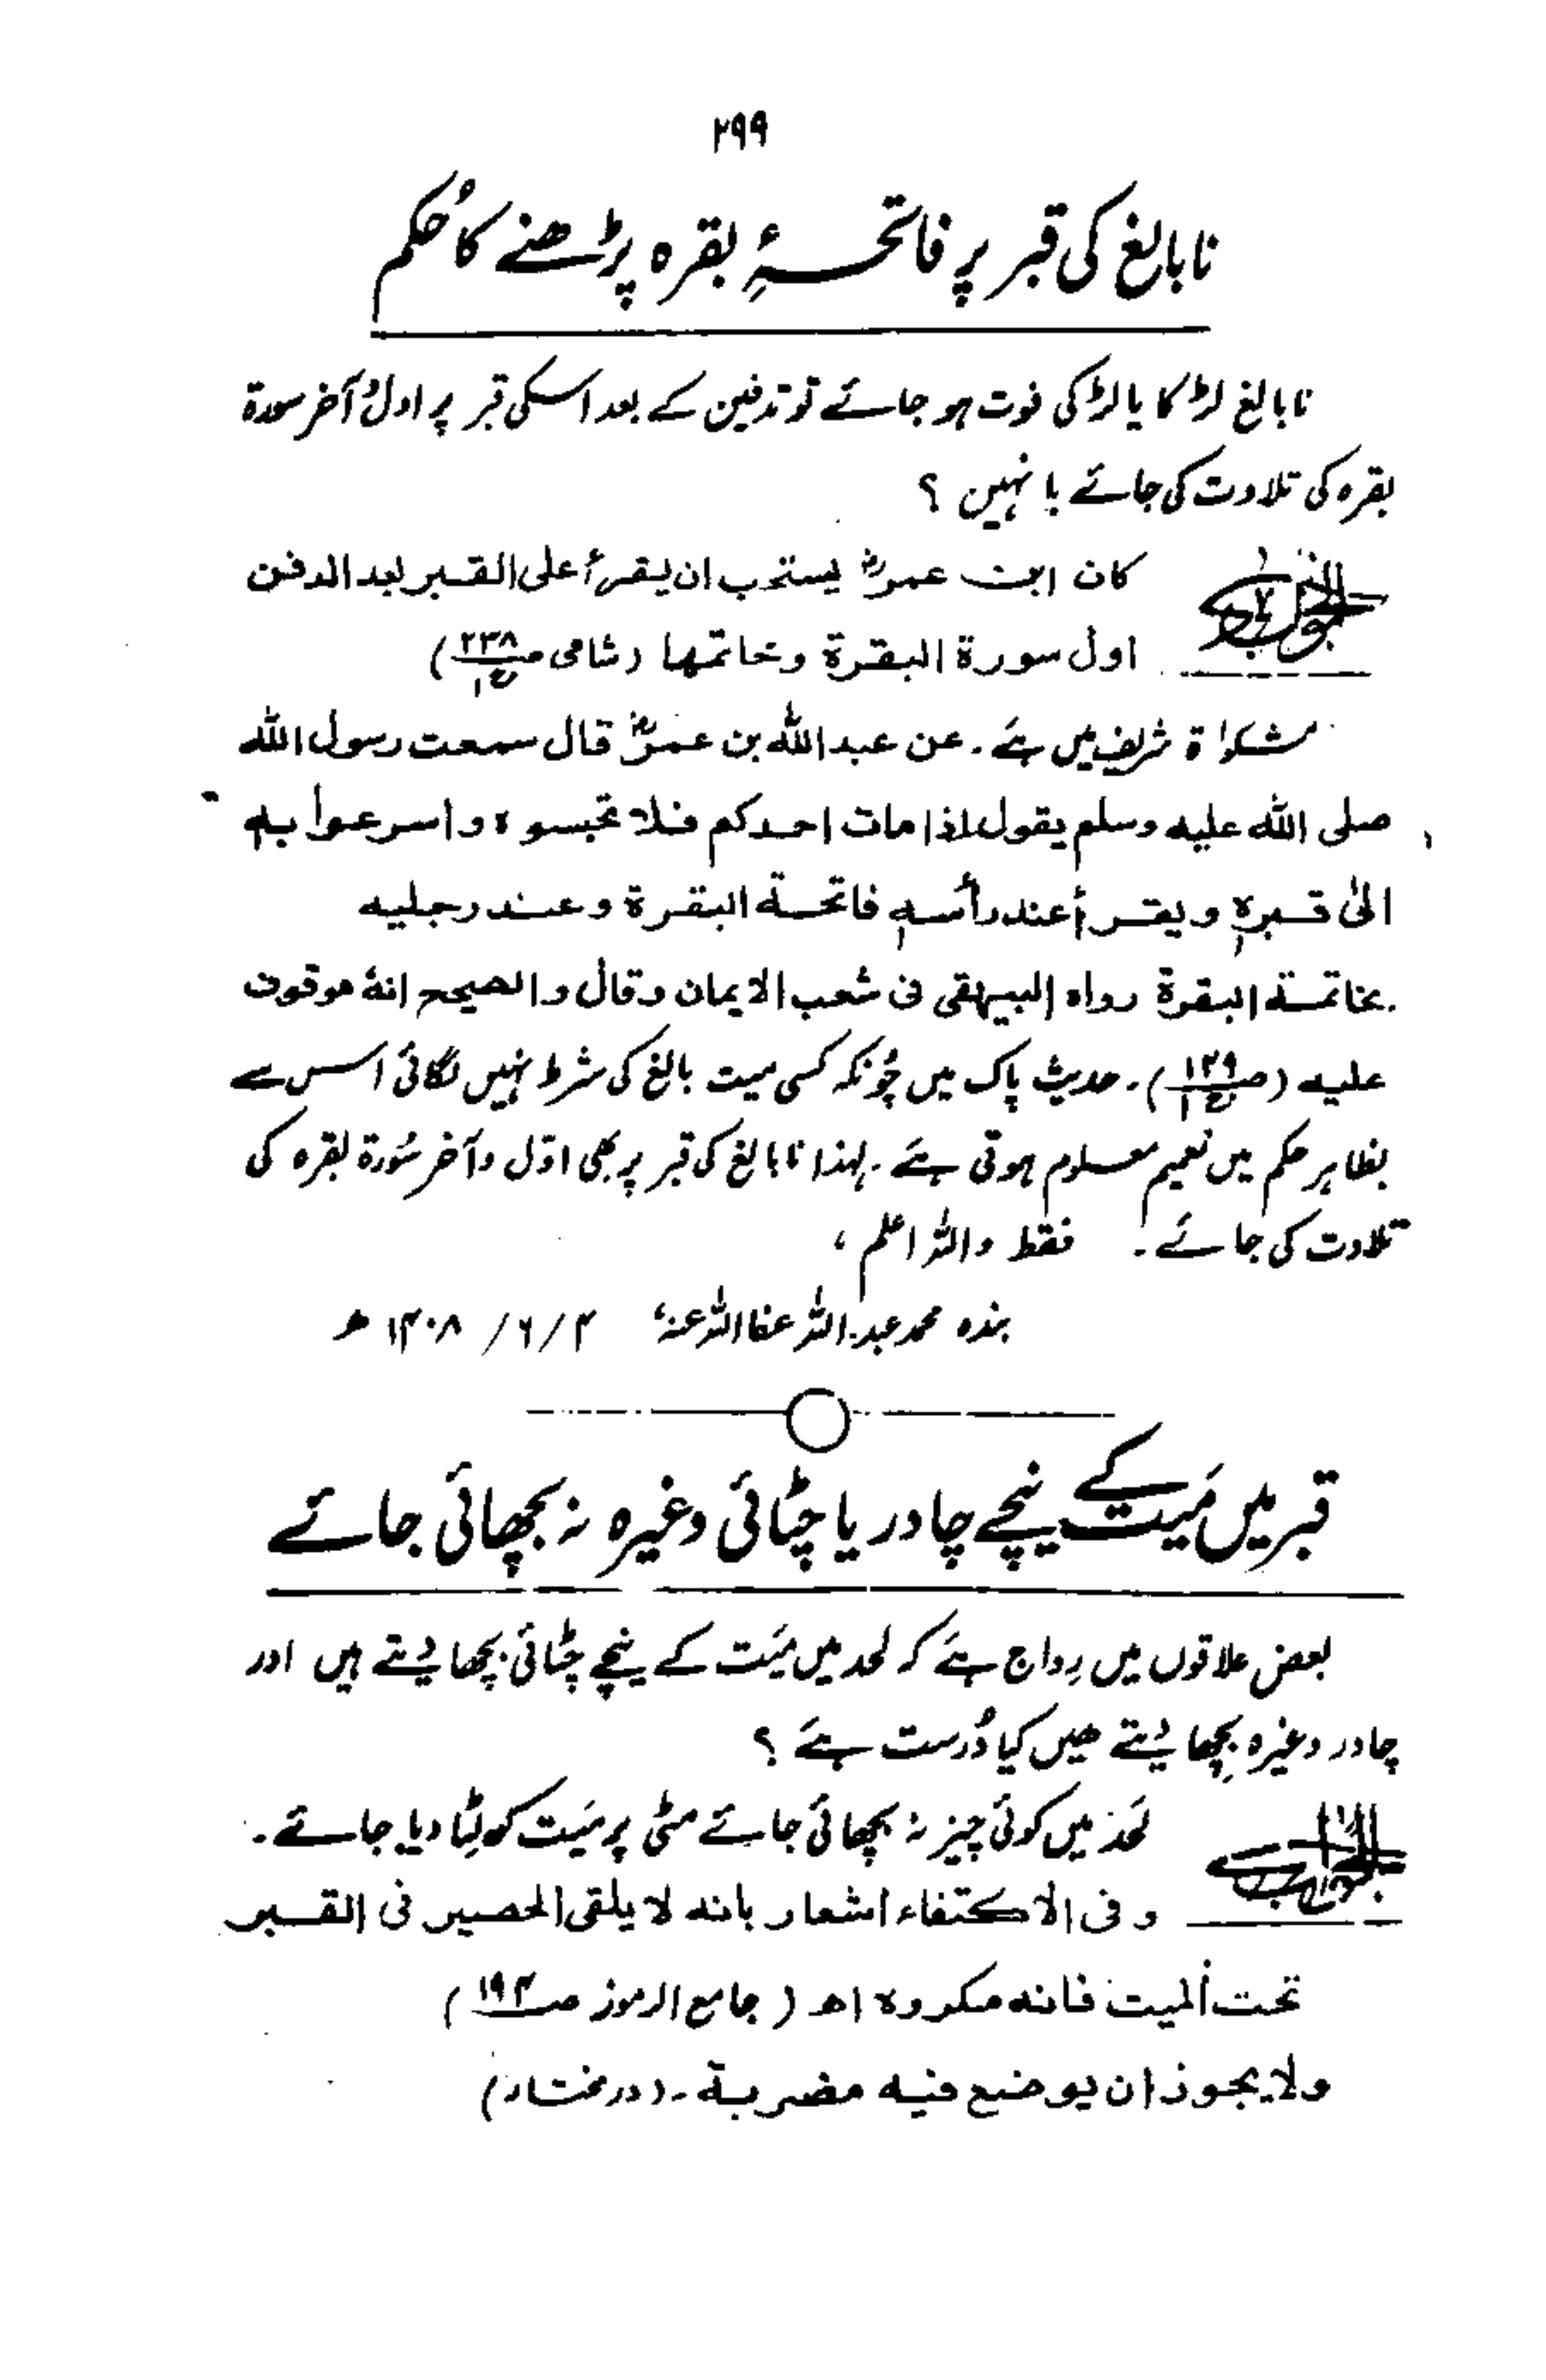 ۲۹۹
نابالغ کی قبر پر فاتحۂ بقرہ پڑھنے کا حُکم
نابالغ لڑکا یا لڑکی فوت ہو جائے تو تدفین کے بعد اسکی قبر پر اول و آخر سورۃ
بقرہ کی تلاوت کی جائے یا نہیں ؟
الجواب کان ابن عمرؓ یستحب ان یقرأ علی القبر بعد الدفن
اول سورۃ البقرۃ وخاتمتها (شامی صـ۲۳۸ ج۱)
مشکواۃ شریف میں ہے ۔ عن عبد اللّٰہ بن عمرؓ قال سمعت رسول اللّٰہ
صلی اللّٰہ علیه وسلم یقول اذا مات احدکم فلا تحبسوہ واسرعوا بهٖ
الیٰ قبرہٖ ویقرأ عند رأسهٖ فاتحة البقرة وعند رجلیه
بخاتمة البقرة رواہ البیهقی فی شعب الایمان وقال والصحیح انهٗ موقوف
علیه (صـ۱۴۹ ج۱) ۔ حدیث پاک میں چُونکہ کسی میت بالغ کی شرط نہیں لگائی اس سے
بظاہر حکم میں تعمیم معلوم ہوتی ہے ۔ لہذا نابالغ کی قبر پر بھی اوّل وآخر سُورۃ بقرہ کی
تلاوت کی جائے ۔ فقط واللّٰہ اعلم ،
بندہ محمد عبد اللّٰہ عفا اللّٰہ عنہٗ ۴ / ۶ / ۱۴۰۸ ھ
قبر میں مَیّت کے نیچے چادر یا چٹائی وغیرہ نہ بچھائی جائے
بعض علاقوں میں رِواج ہے کہ لحد میں میّت کے نیچے چٹائی بچھا دیتے ہیں اور
چادر وغیرہ بچھا دیتے ہیں کیا دُرست ہے ؟
الجواب لَحَد میں کوئی چیز نہ بچھائی جائے مٹی پر میّت کو لِٹا دیا جائے ۔
وفی الاکتفاء اشعار بانه لا یلقی الحصیر فی القبر
تحت المیت فانه مکروہ اھ ( جامع الرموز صـ۱۹۴ )
ولا یجوز ان یوضع فیه مضربة ۔ (درمختار)